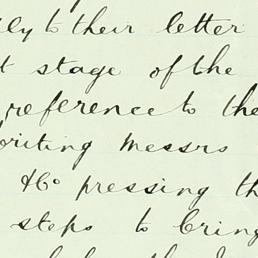 ly to their letter
t stage of the
reference to the
writing Messrs
&Co pressing th
steps to bring